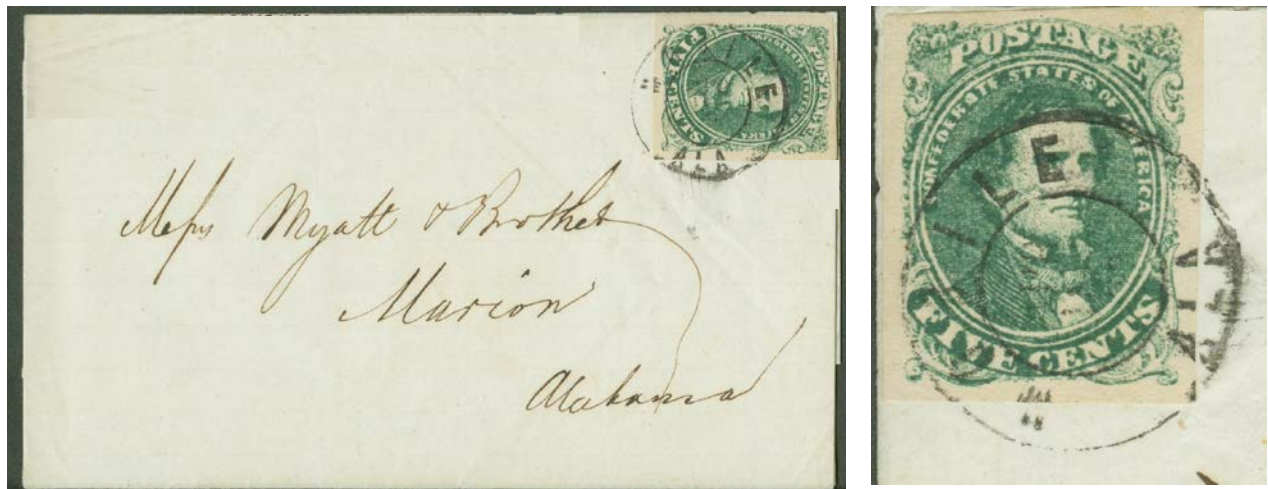 POSTAGE
CONFEDERATE STATES OF AMERICA
FIVE CENTS
ILE
ALA
Messrs Myatt & Brother
Marion
Alabama
POSTAGE
CONFEDERATE STATES OF AMERICA
ILE
ALA
FIVE CENTS